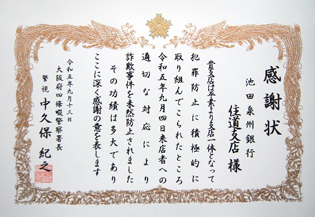 感謝状
池田泉州銀行
住道支店 様
貴支店は平素より支店一体となって
犯罪防止に積極的に
取り組んでこられたところ
令和五年九月四日来店者への
適切な対応により
詐欺事件を未然防止されました
その功績は多大であり
ここに深く感謝の意を表します
令和五年九月十三日
大阪府四條畷警察署長
警視 中久保 紀之